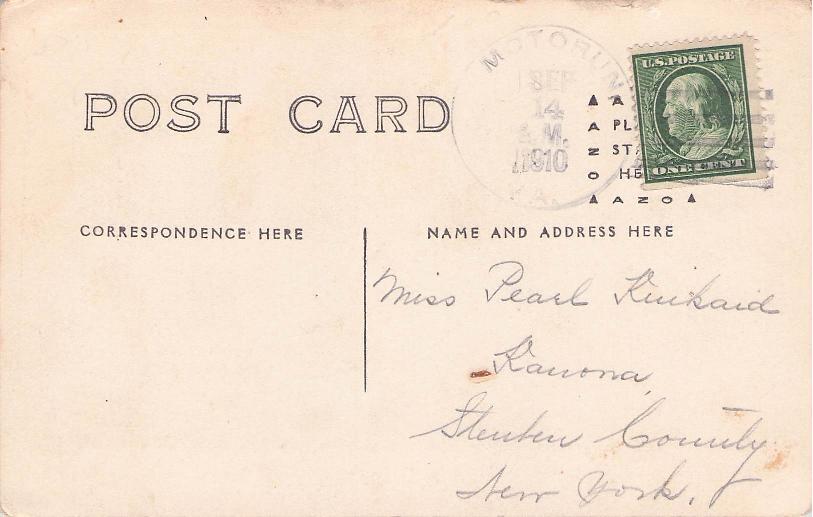 POST CARD
MOTORUN
SEP
14
A.M.
1910
VA.
U.S. POSTAGE
ONE CENT
AZO
PL
ST
HE
AZO
CORRESPONDENCE HERE
NAME AND ADDRESS HERE
Miss Pearl Kinkaid
Kanona,
Steuben County
New York.